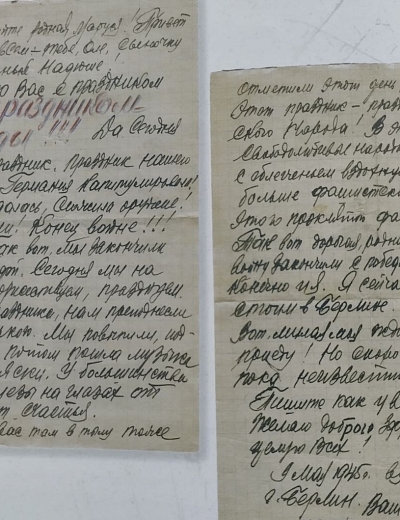 йте родная Мамуся! Привет
всем – тебе, Оле, Евгеничку
Надюше!
ю Вас с праздником
раздником
ды!!! Да Сегодня
раздник. Праздник нашего
Германия капитулировала!
далась, Сложила оружие!
и! Конец войне!!!
ак вот. Мы закончили
дой. Сегодня мы на
оржествуем, празднуем.
раздника, нам преподнесли
Мы повыпили,
потом пошла музыка
ляски. У большинства
слезы на глазах от
от счастья.
Вас там в тылу тоже
отметили этот день
Этот праздник – праз
ского Народа! В э
Свободолюбивые народы
с облегчением вздохнул
больше фашистск
этого проклятого фа
Так вот дорогая, родн
войну закончили с победо
Конечно и я. Я сейча
стоим в Берлине.
Вот милая моя
приеду! Но скоро
пока неизвестн
Пишите как у в
Желаю доброго здо
целую Всех!
9 Мая 1945 г.
г. Берлин. Ваш